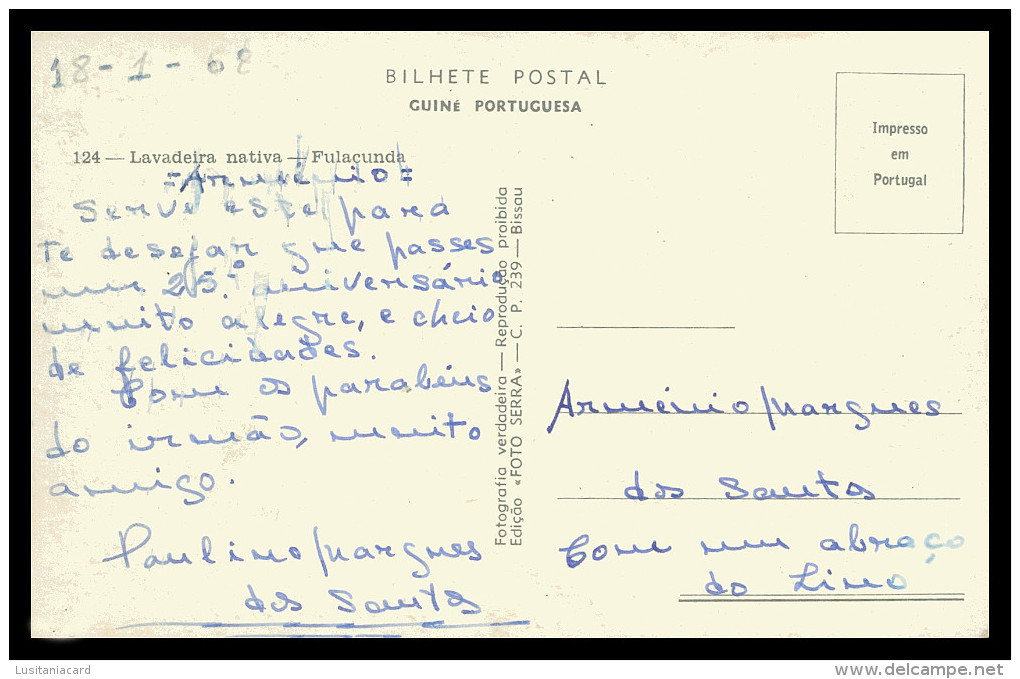 18-1-68
BILHETE POSTAL
GUINÉ PORTUGUESA
Impresso
em
Portugal
124 — Lavadeira nativa — Fulacunda
=Arménio=
Serve este para
te desejar que passes
um 25.º aniversário
muito alegre, e cheio
de felicidades.
Com os parabéns
do irmão, muito
amigo.
Paulino Marques
dos Santos
Fotografia verdadeira — Reprodução proibida
Edição «FOTO SERRA» — C. P. 239 — Bissau
Arménio Marques
dos Santos
Com um abraço
do Lino
Lusitaniacard
www.delcampe.net